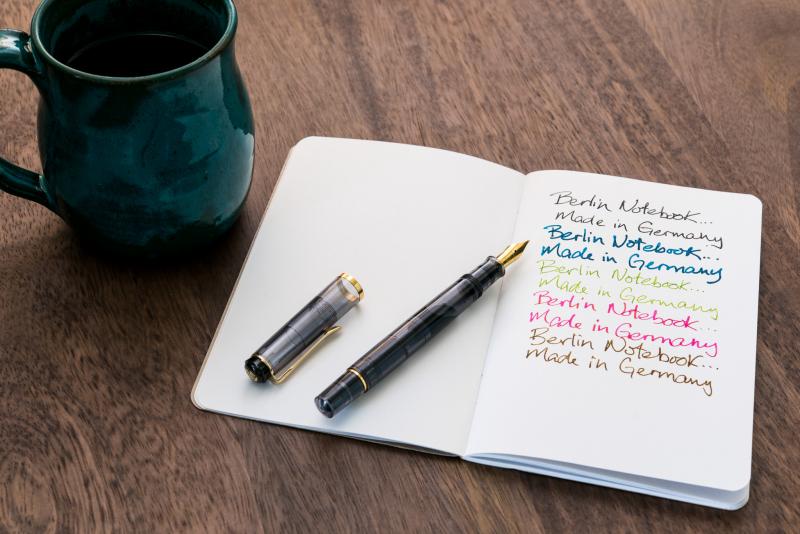 Berlin Notebook...
Made in Germany
Berlin Notebook...
Made in Germany
Berlin Notebook...
Made in Germany
Berlin Notebook...
Made in Germany
Berlin Notebook...
Made in Germany